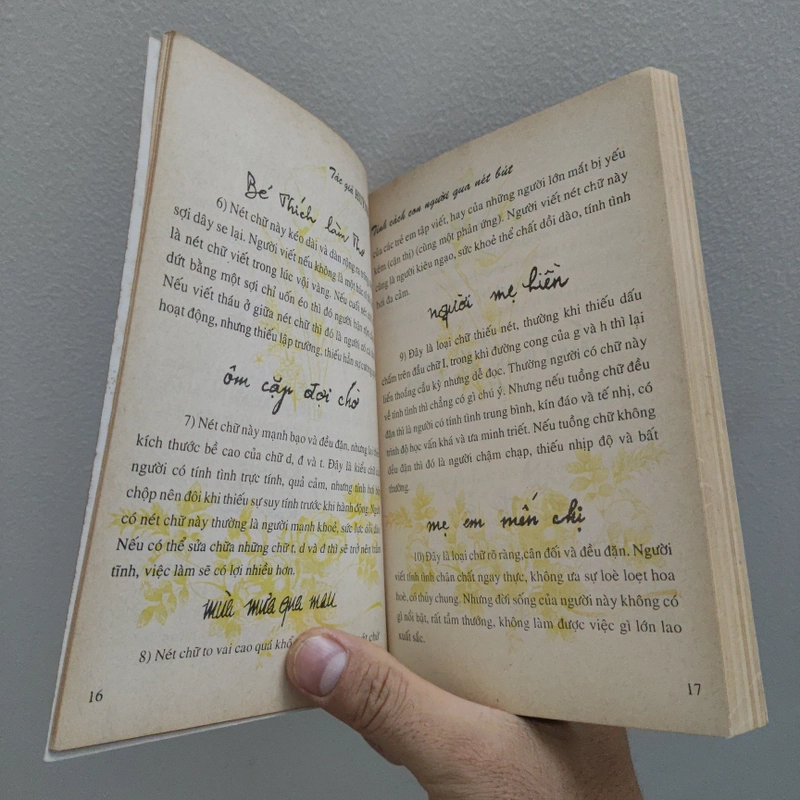 Tác giả
Bé thích làm thơ
6) Nét chữ này kéo dài và dàn rộng ra
sợi dây se lại. Người viết nếu không là một
là nét chữ viết trong lúc vội vàng. Nếu cuối
dứt bằng một sợi chỉ uốn éo thì đó người
Nếu viết tháu ở giữa nét chữ thì đó là người có
hoạt động, nhưng thiếu lập trường, thiếu hẳn sự
ôm cặp đợi chờ
7) Nét chữ này mạnh bạo và đều đặn, nhưng
kích thước bề cao của chữ d, đ và t. Đây là kiểu chữ
người có tính tình trực tính, quả cảm, nhưng tính
chộp nên đôi khi thiếu sự suy tính trước khi hành động.
có nét chữ này thường là người mạnh khoẻ, sức lực dồi
Nếu có thể sửa chữa những chữ t, d và đ thì sẽ trở nên trầm
tĩnh, việc làm sẽ có lợi nhiều hơn.
mùa mưa qua mau
8) Nét chữ to vai cao quá khổ chữ
16
Tính cách con người qua nét bút
của các trẻ em tập viết, hay của những người lớn mắt bị yếu
kém (cận thị) (cũng một phản ứng). Người viết nét chữ này
cũng là người kiêu ngạo, sức khoẻ thể chất dồi dào, tính tình
hơi đa cảm.
người mẹ hiền
9) Đây là loại chữ thiếu nét, thường khi thiếu dấu
chấm trên đầu chữ I, trong khi đường cong của g và h thì lại
liến thoắng cầu kỳ nhưng dễ đọc. Thường người có chữ này
về tính tình thì chẳng có gì chú ý. Nhưng nếu tuồng chữ đều
đặn thì đó là người có tính tình trung bình, kín đáo và tế nhị, có
trình độ học vấn khá và ưa minh triết. Nếu tuồng chữ không
đều đặn thì đó là người chậm chạp, thiếu nhịp độ và bất
thường.
mẹ em mến chị
10) Đây là loại chữ rõ ràng, cân đối và đều đặn. Người
viết tính tình chân chất ngay thực, không ưa sự loè loẹt hoa
hoè, có thủy chung. Nhưng đời sống của người này không có
gì nổi bật, rất tầm thường, không làm được việc gì lớn lao
xuất sắc.
17